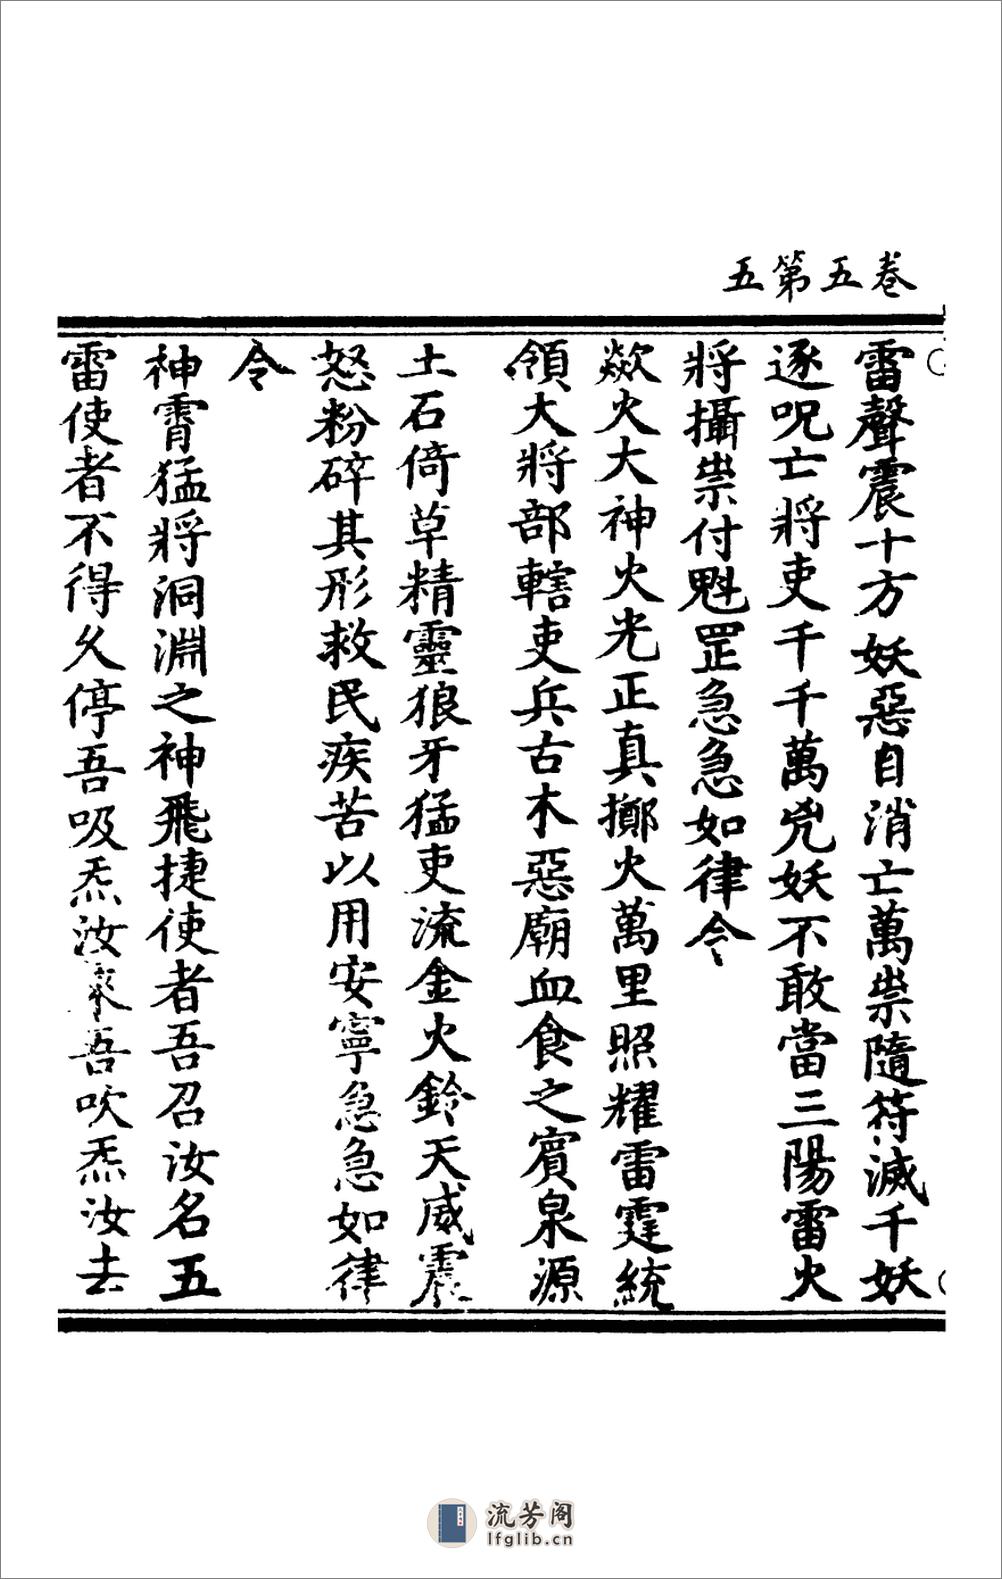 卷五第五
雷聲震十方妖惡自消亡萬祟隨符滅千妖
逐呪亡將吏千千萬兇妖不敢當三陽雷火
將攝祟付魁罡急急如律令
歘火大神火光正真擲火萬里照耀雷霆統
領大將部轄吏兵古木惡廟血食之賓泉源
土石倚草精靈狼牙猛吏流金火鈴天威震
怒粉碎其形救民疾苦以用安寧急急如律
令
神霄猛將洞淵之神飛捷使者吾召汝名五
雷使者不得久停吾吸炁汝來吾吹炁汝去
流芳阁
lfglib.cn